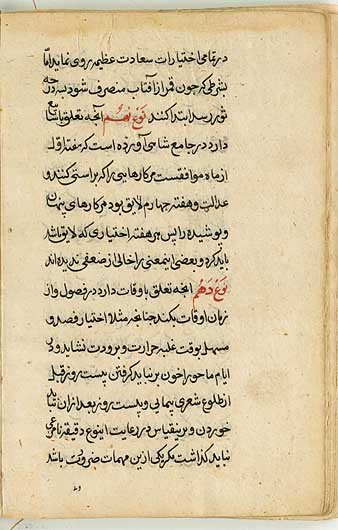 در تمامی اختیارات سعادت عظیمه روی نماید اما
بشرطی که چون قمر از آفتاب منصرف شود بسه درجه
ثور رسد ابتدا کنند نوع نهم آنچه تعلق باسابیع
دارد در جامع شاهی آورده است که هفته اول
از ماه موافقست مر کارهایی را که براستی کنند و
عدالت و هفته چهارم لایق بود مر کارهای پنهان
و پوشیده را پس هر هفته اختیاری که لایق باشد
باید کرد و بعضی اینمعنی را خالی از ضعفی ندیده اند
نوع دهم آنچه تعلق باوقات دارد در فصول و از
زمان اوقات بکند چنانچه مثلا اختیار فصد و
مسهل بوقت غلبه حرارت و برودت نشاید و در
ایام ماحورا خون بر نباید گرفتن بیست روز قبل
از طلوع شعری یمانی و بیست روز بعد از آن نباید
خوردن و برینقیاس در رعایت اینوع دقیقه نامرعی
نباید گذاشت که یکی ازین مهمات ضروری باشد